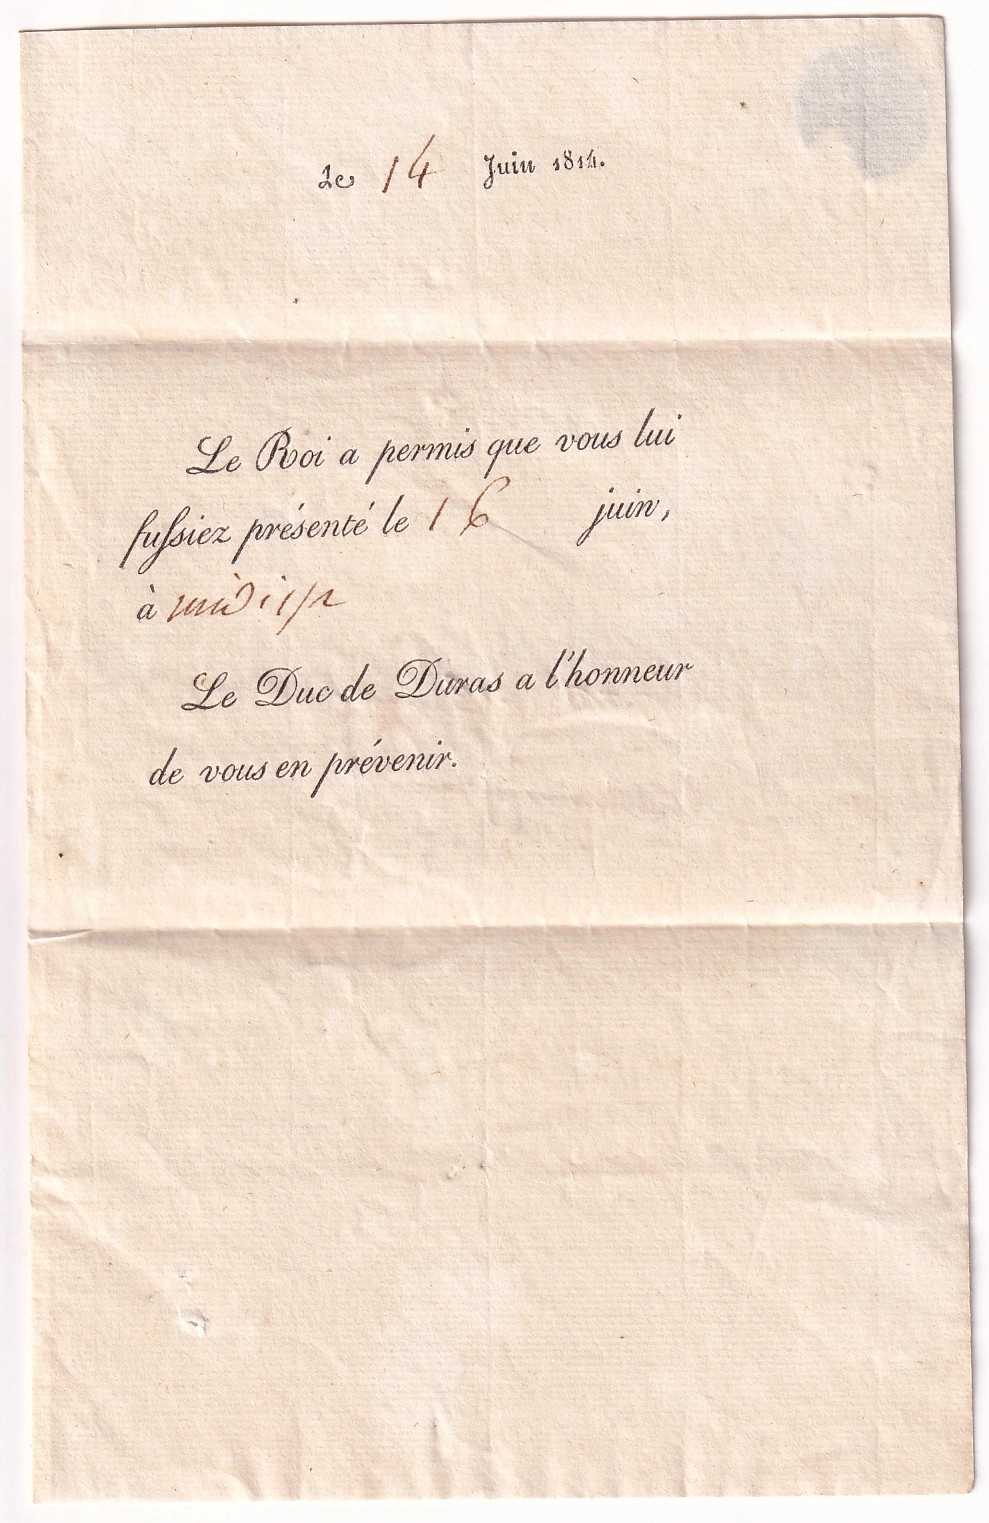 Le 14 Juin 1814.
Le Roi a permis que vous lui
fuſsiez présenté le 16 juin,
à midi 1/2
Le Duc de Duras a l'honneur
de vous en prévenir.